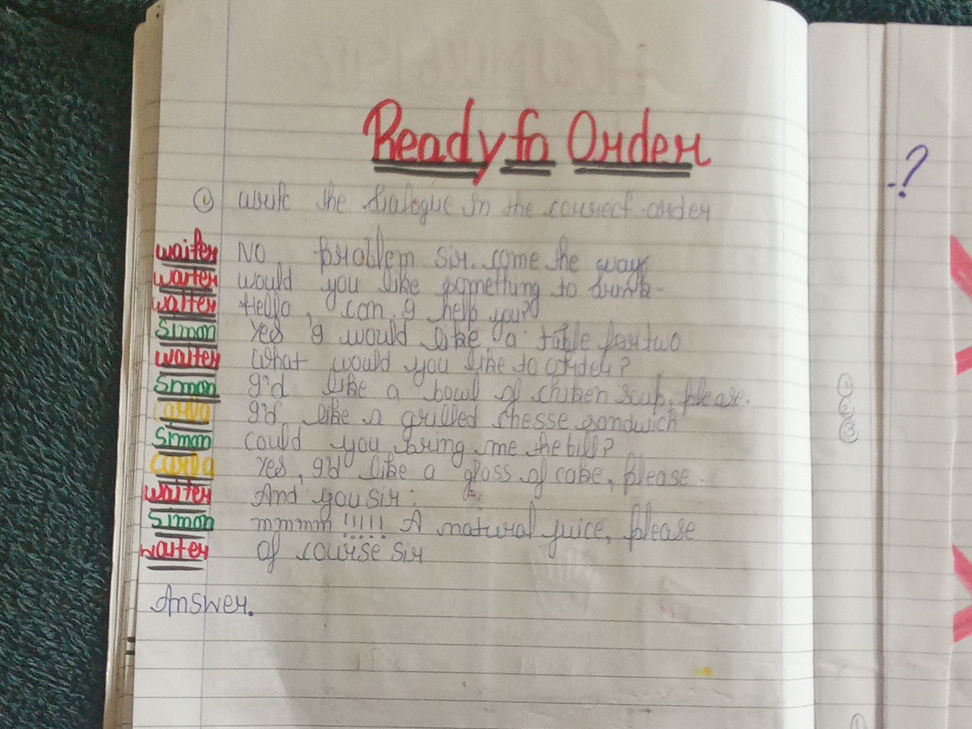 Ready to Order
① write the dialogue in the correct order
waiter No problem sir. come the way
waiter would you like something to drink.
waiter Hello, can I help you?
Simon Yes I would like a table for two
waiter What would you like to order?
Simon I'd like a bowl of chiken soup, please.
carla I'd like a grilled chesse sandwich
Simon could you bring me the bill?
Carla Yes, I'd like a glass of coke, please.
waiter And you sir.
Simon mmmmm !!!!! A natural juice, please
waiter of course sir
Answer.
?
①
②
③